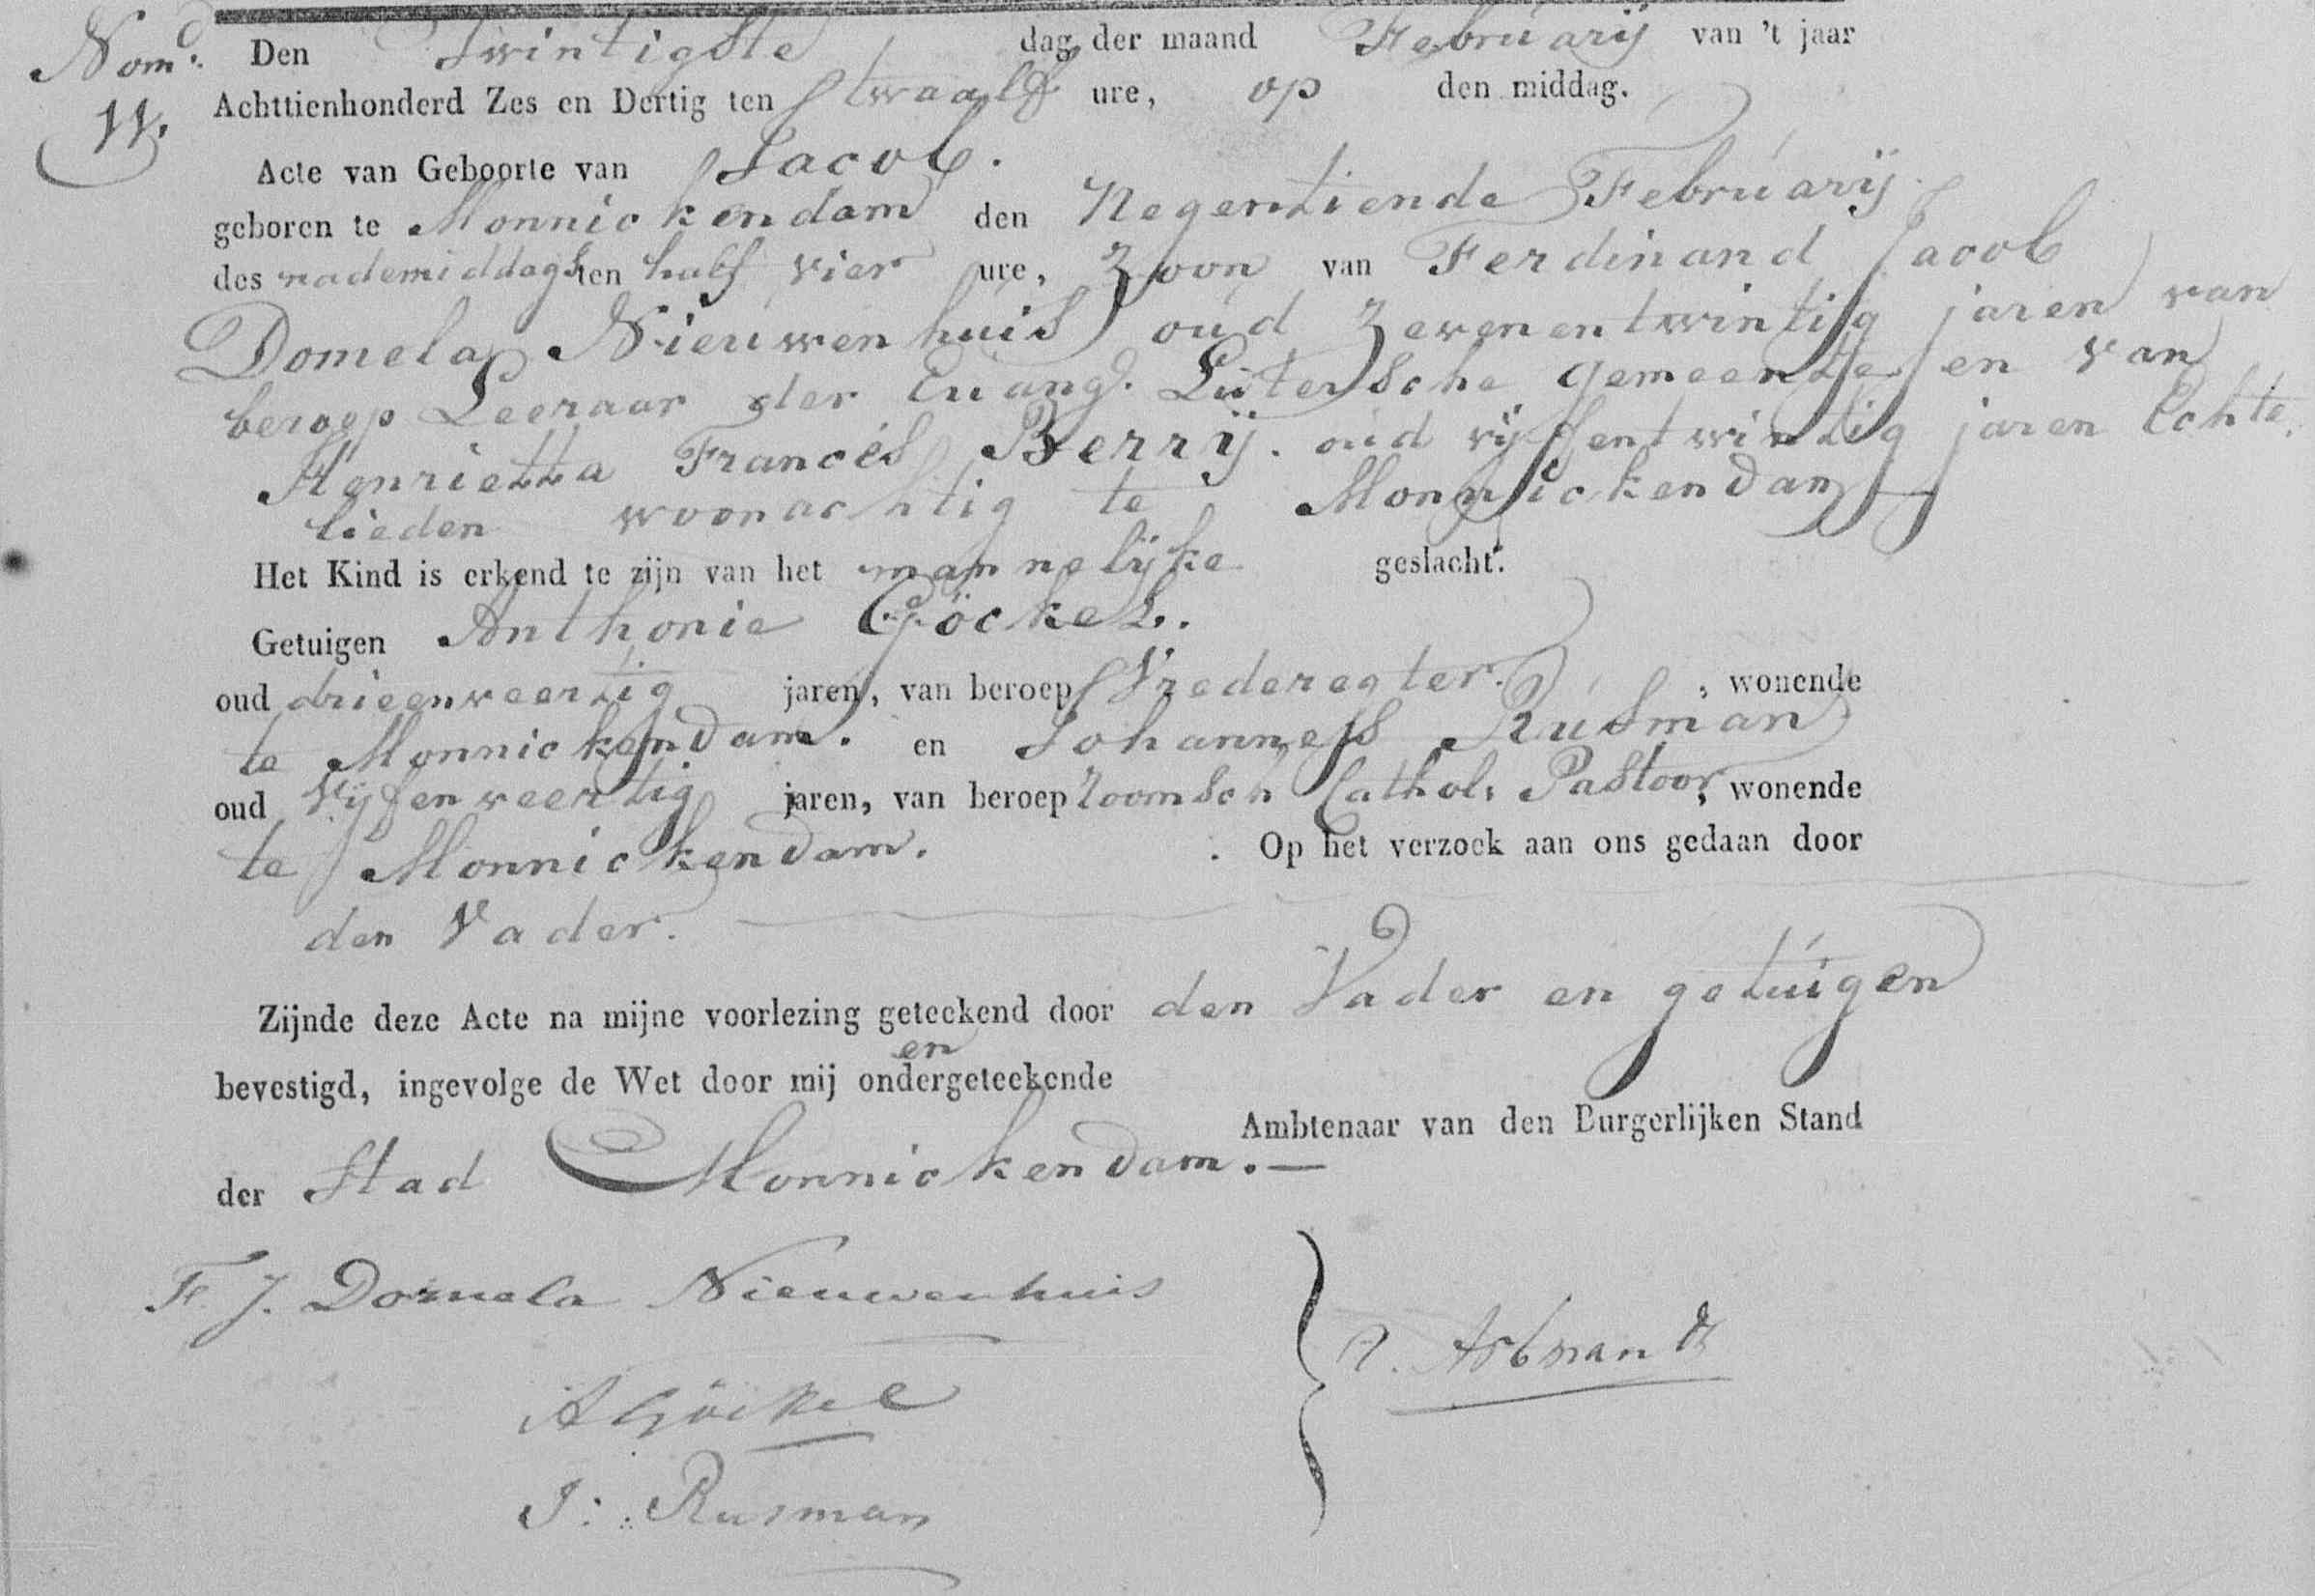 Nomd. Den Twintigste dag der maand Februarij van 't jaar
11. Achttienhonderd Zes en Dertig ten twaalf ure, op den middag.
Acte van Geboorte van Jacob.
geboren te Monnickendam den Negentiende Februarij
des nademiddags ten half vier ure, Zoon van Ferdinand Jacob
Domela Nieuwenhuis oud Zevenentwintig jaren van
beroep Leeraar der Euang. Lutersche gemeente en van
Henrietta Francés Berrij. oud vijfentwintig jaren Echte,
lieden woonachtig te Monnickendam
Het Kind is erkend te zijn van het mannelijke geslacht.
Getuigen Anthonie Göckel.
oud drieenveertig jaren, van beroep Vrederegter, wonende
te Monnickendam. en Johannes Rusman
oud Vijfenveertig jaren, van beroep roomsch Cathol. Pastoor, wonende
te Monnickendam. Op het verzoek aan ons gedaan door
den Vader.
Zijnde deze Acte na mijne voorlezing geteekend door den Vader en getuigen
en
bevestigd, ingevolge de Wet door mij ondergeteekende
Ambtenaar van den Burgerlijken Stand
der Stad Monnickendam.—
F. J. Domela Nieuwenhuis
A Göckel
J: Rusman